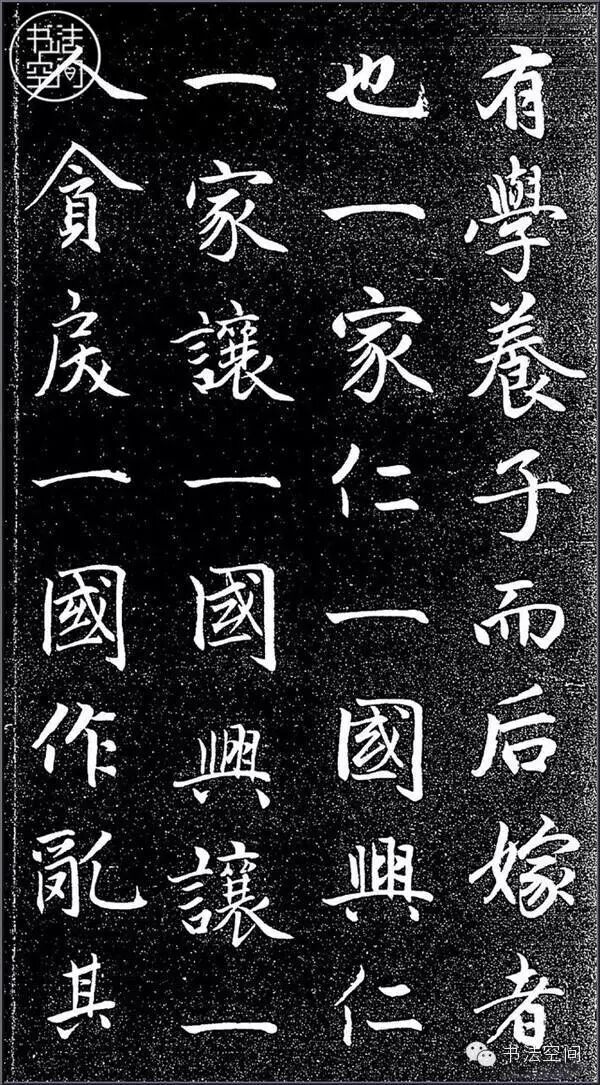 有學養子而后嫁者
也一家仁一國興仁
一家讓一國興讓一
人貪戾一國作亂其
书法
空间
书法空间